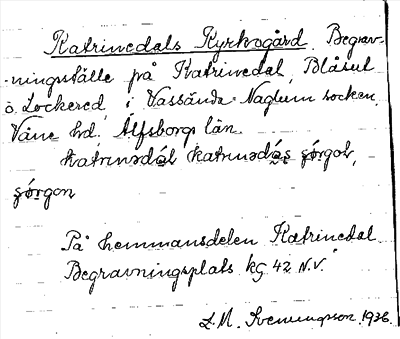 Katrinedals Kyrkogård. Begrav-
-ningsställe på Katrinedal, Blåsut
o. Lockered, i Vassända-Naglum socken
Väne hd. Älfsborgs län.
katrinədál katrinədás
På hemmansdelen Katrinedal
Begravningsplats kg 42 N.V.
L.M. Svenungsson. 1936.